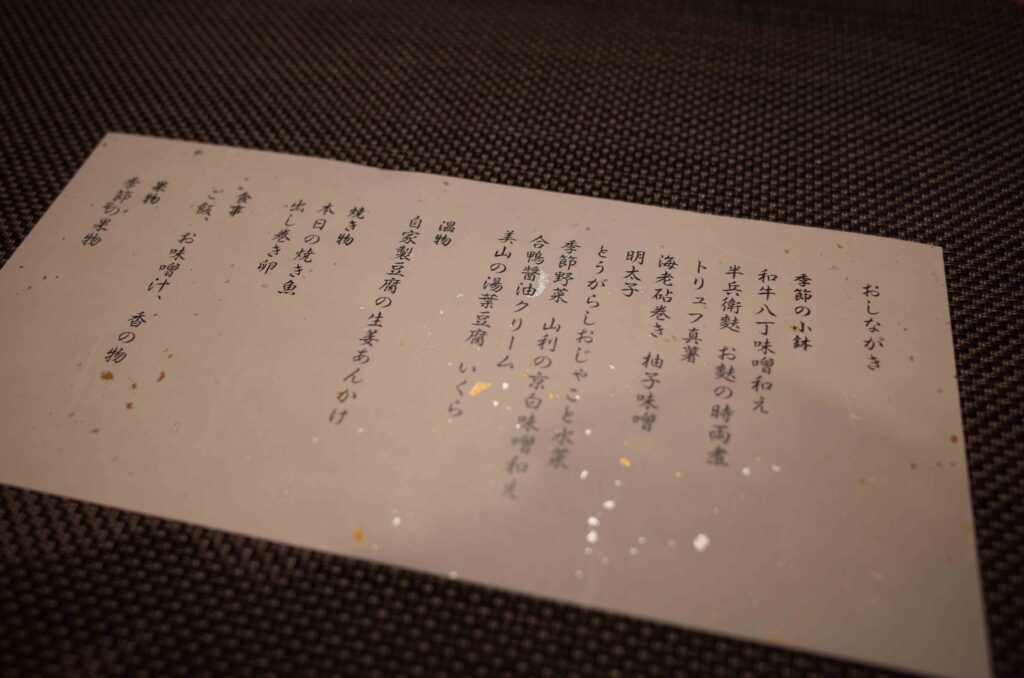 おしながき
季節の小鉢
和牛八丁味噌和え
半兵衛麩　お麩の時雨煮
トリュフ真薯
海老砧巻き　柚子味噌
明太子
とうがらしおじゃこと水菜
季節野菜　山利の京白味噌和え
合鴨醤油クリーム
美山の湯葉豆腐　いくら
温物
自家製豆腐の生姜あんかけ
焼き物
本日の焼き魚
出し巻き卵
食事
ご飯、お味噌汁、香の物
果物
季節の果物